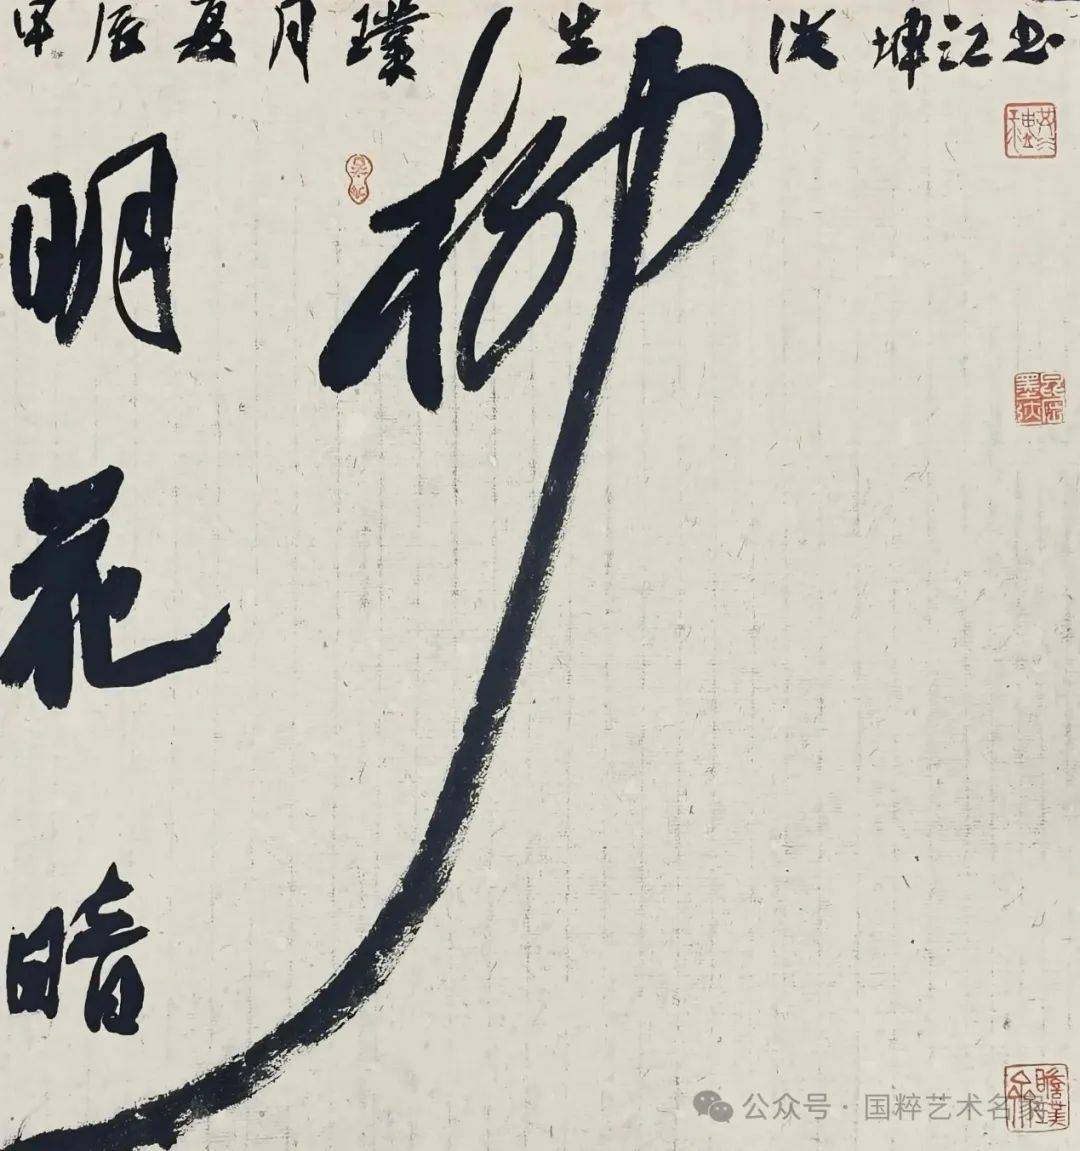 甲辰夏月璞生坤江书
柳
明花暗
公众号 · 国粹艺术名家